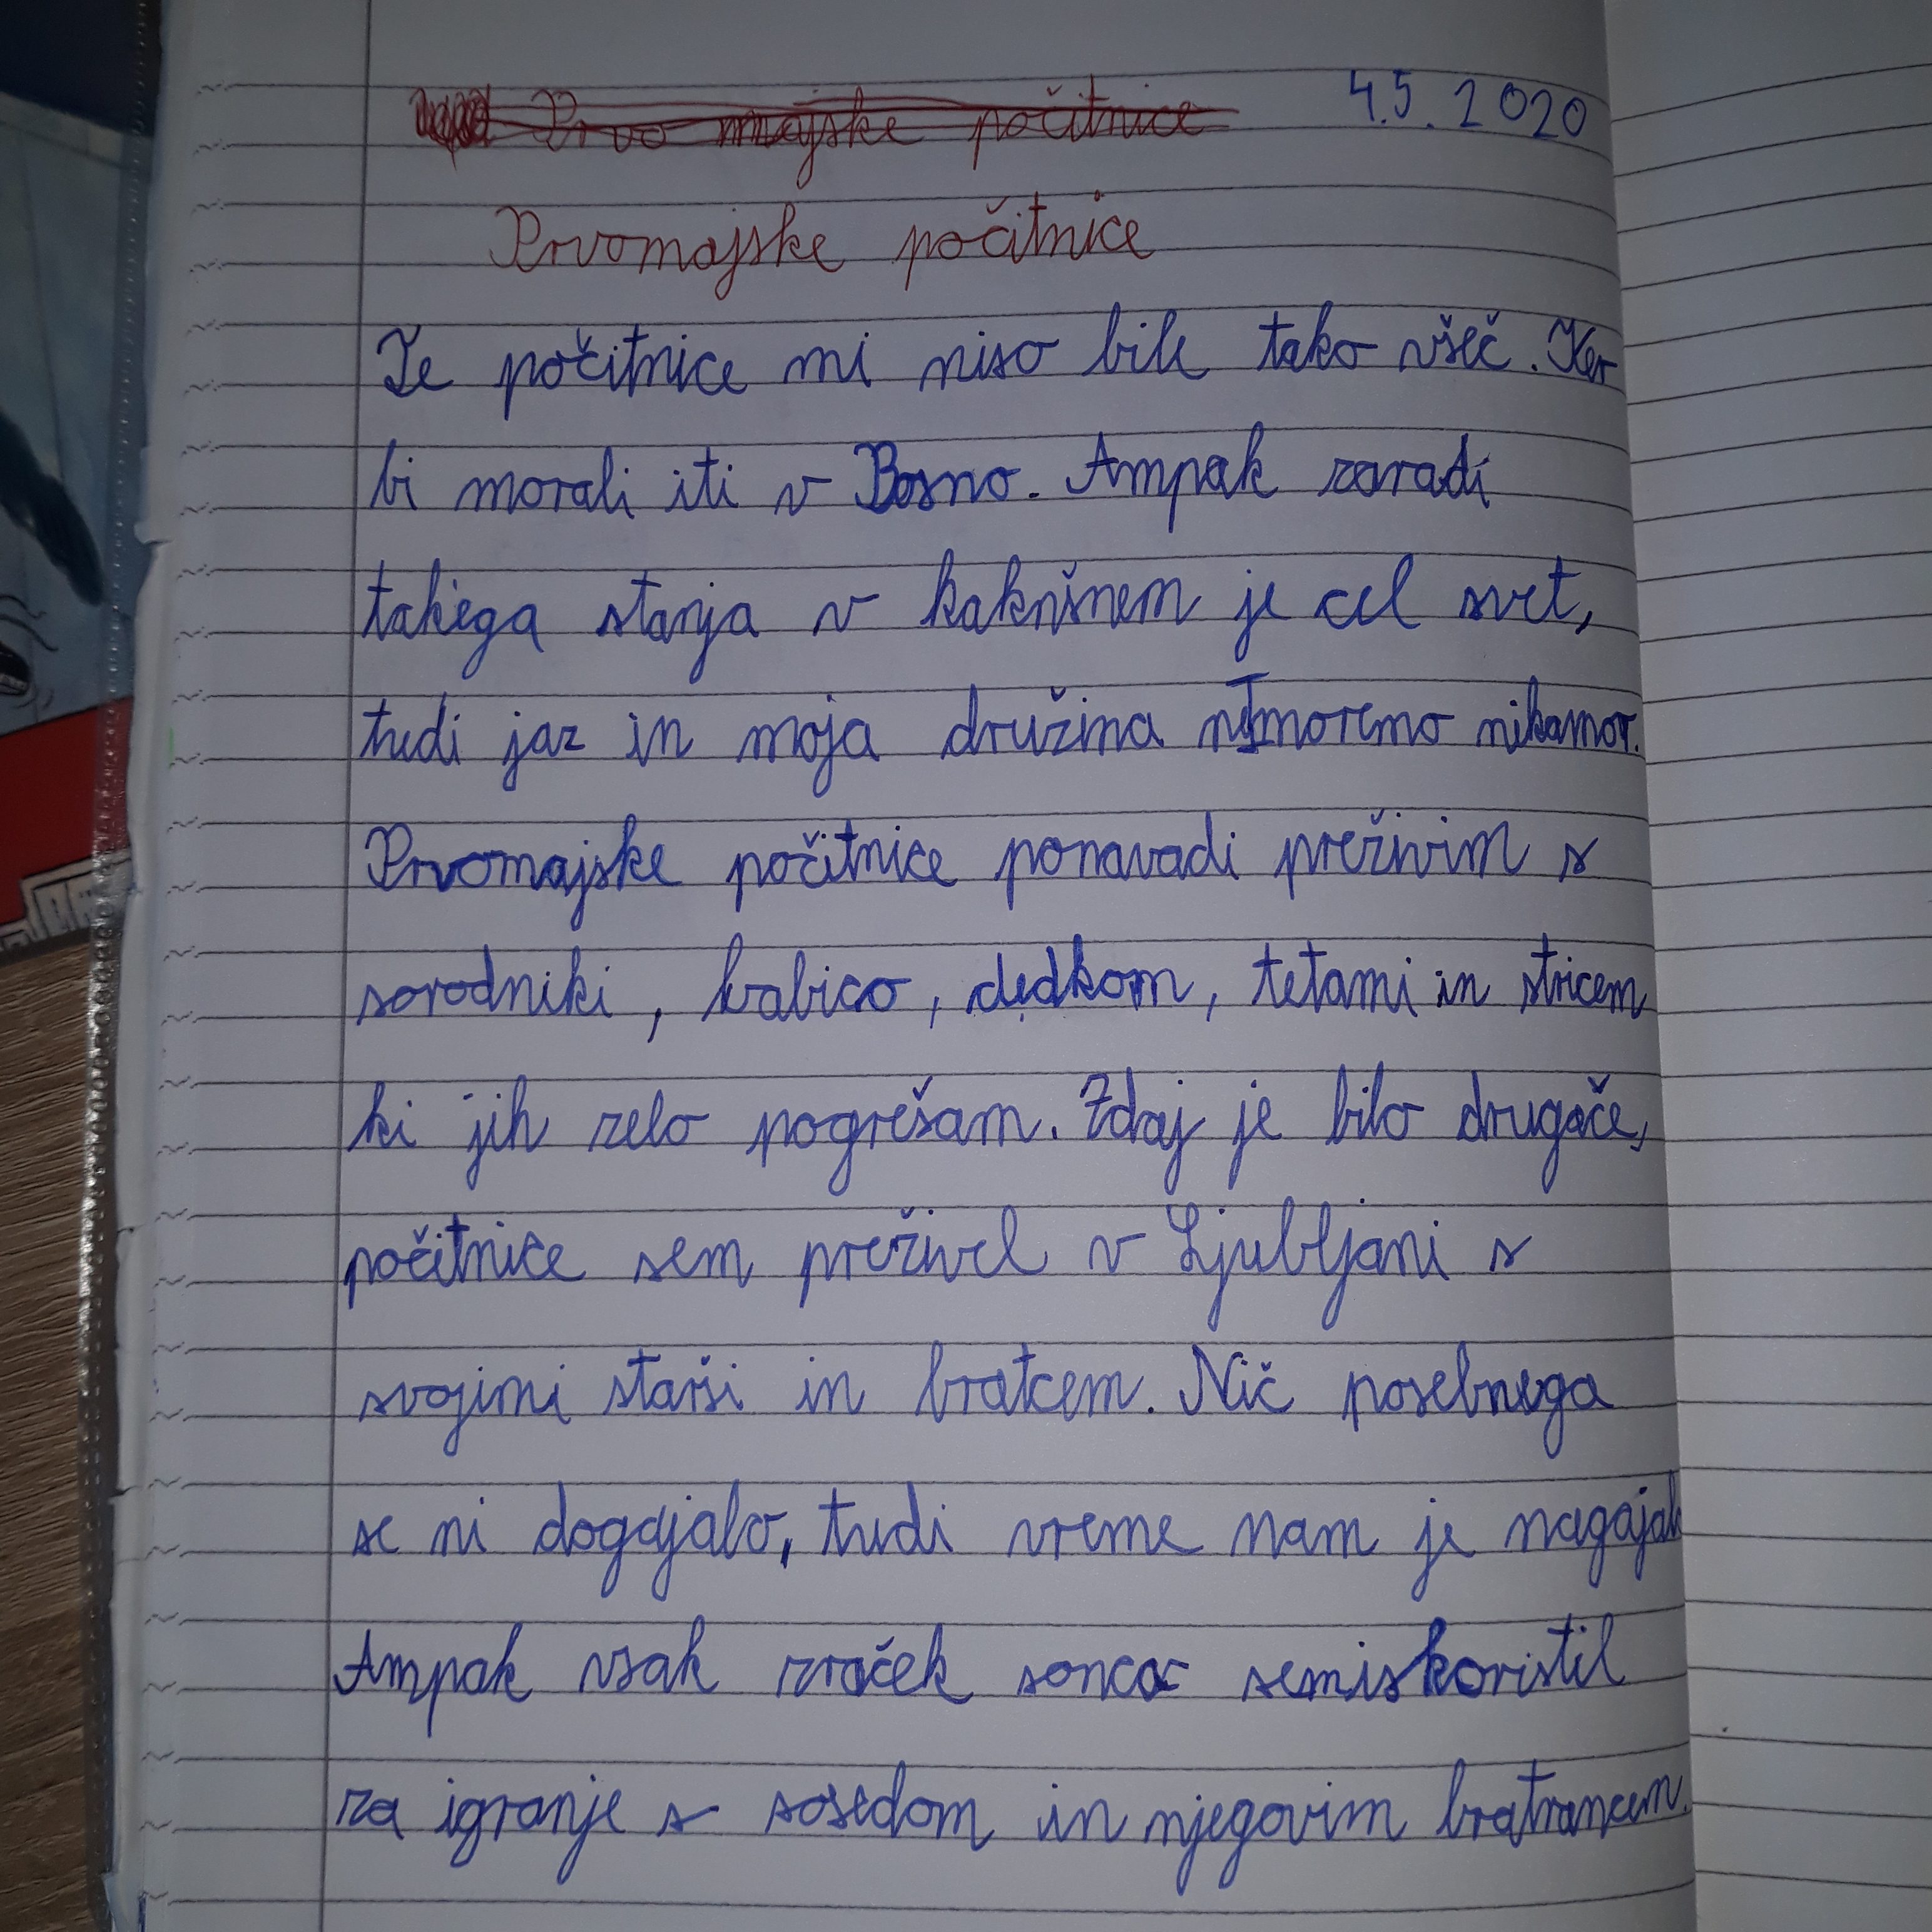 Prvo majske počitnice 4.5.2020
Prvomajske počitnice
Te počitnice mi niso bile tako všeč. Ker
bi morali iti v Bosno. Ampak zaradi
takega stanja v kakršnem je cel svet,
tudi jaz in moja družina ne moremo nikamor.
Prvomajske počitnice ponavadi preživim s
sorodniki, babico, dedkom, tetami in stricem
ki jih zelo pogrešam. Zdaj je bilo drugače,
počitnice sem preživel v Ljubljani s
svojimi starši in bratcem. Nič posebnega
se ni dogajalo, tudi vreme nam je nagajalo
Ampak vsak žraček sonca sem iskoristil
za igranje s sosedom in njegovim bratrancem.